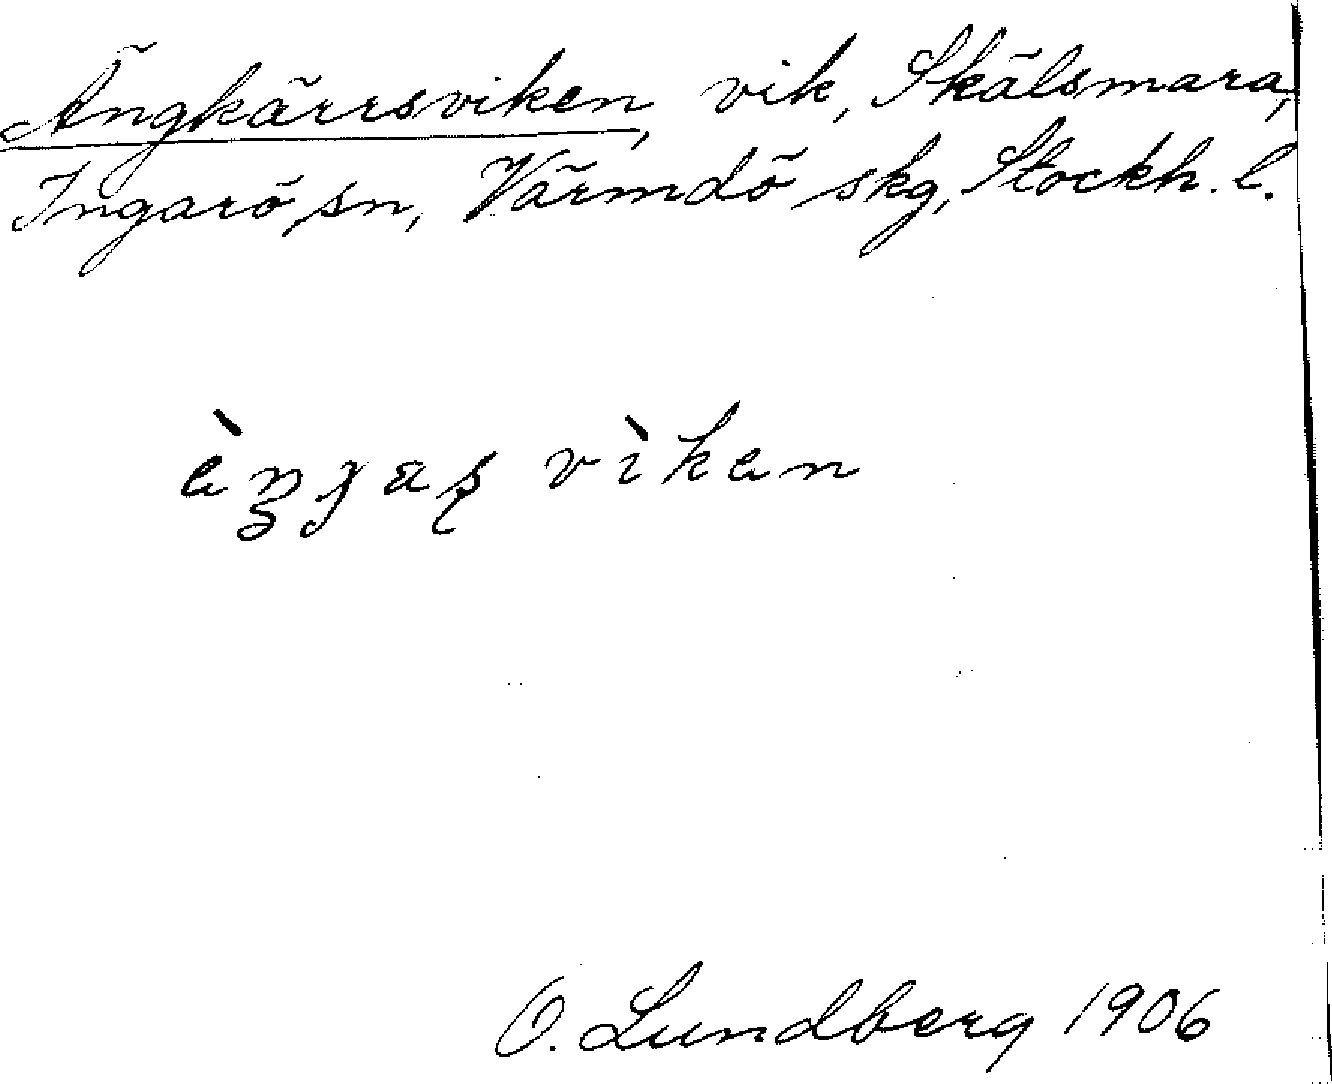 Ängkärrsviken, vik, Skälsmara,
Ingarö sn, Värmdö skg, Stockh. l.
vìkan
O. Lundberg 1906